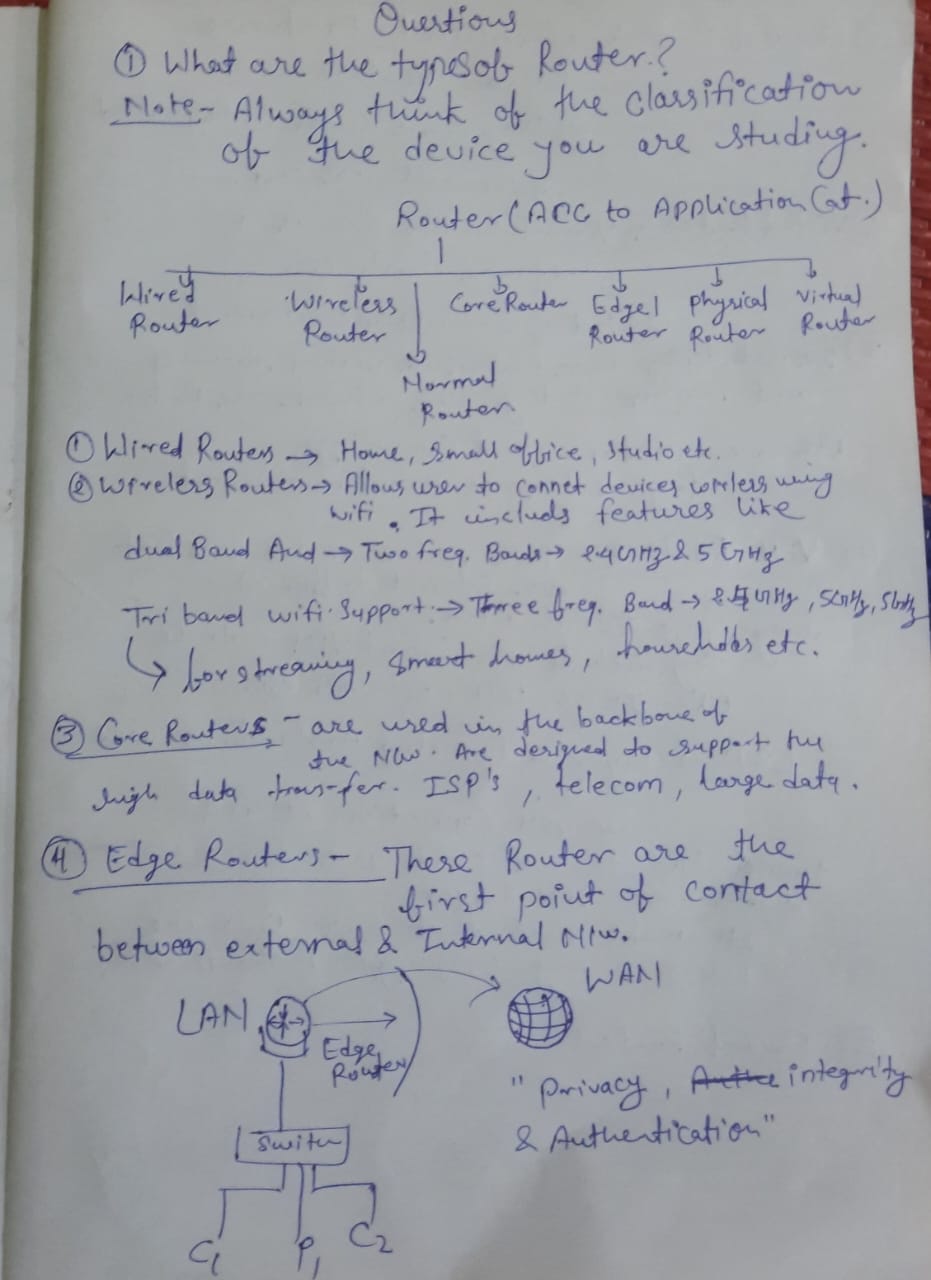 Questions
① What are the types of Router.?
Note- Always think of the classification
of the device you are studing.
Router (ACC to Application Cat.)
Wired Router
Wireless Router
Core Router
Edge Router
Physical Router
Virtual Router
Normal Router
① Wired Routers → Home, Small office, Studio etc.
② Wireless Routers → Allows user to connet devices wireless using
wifi. It includs features like
dual Band And → Two freq. Bands → 2.4 GHz & 5 GHz
Tri band wifi Support. → Three freq. Band → GHz, 5GHz, 5GHz
↳ for streaming, Smart homes, households etc.
③ Core Routers - are used in the backbone of
the N/w. Are designed to support the
high data transfer. ISP's, telecom, large data.
④ Edge Routers - These Router are the
first point of contact
between external & Internal N/w.
WAN
LAN
Edge Router
"Privacy, integrity
& Authentication"
Switch
C1 P1 C2